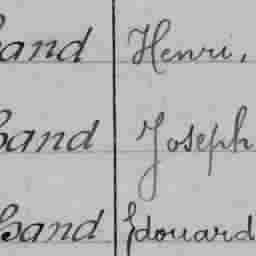 sand Henri,
Sand Joseph
Sand Edouard